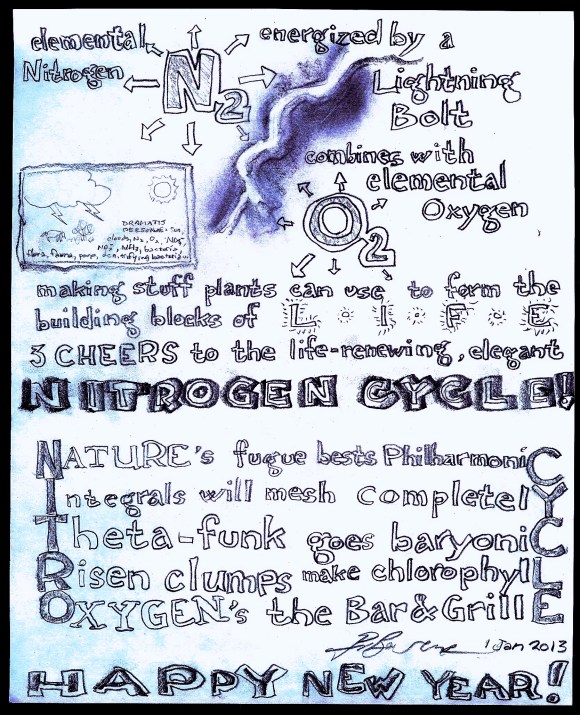 elemental energized by a
Nitrogen N2 Lightning
Bolt
combines with
elemental
Oxygen
O2
DRAMATIS
PERSONAE
clouds, N2, O2, NO2
NO3, NH3, bacteria,
flora, fauna, poop, denitrifying bacteria
making stuff plants can use to form the
building blocks of L I F E
3 CHEERS to the life-renewing, elegant
NITROGEN CYCLE!
NATURE's fugue bests PhilharmoniC
Integrals will mesh completelY
Theta-funk goes baryoniC
Risen clumps make chlorophylL
OXYGEN's the Bar&GrillE
1 Jan 2013
HAPPY NEW YEAR!